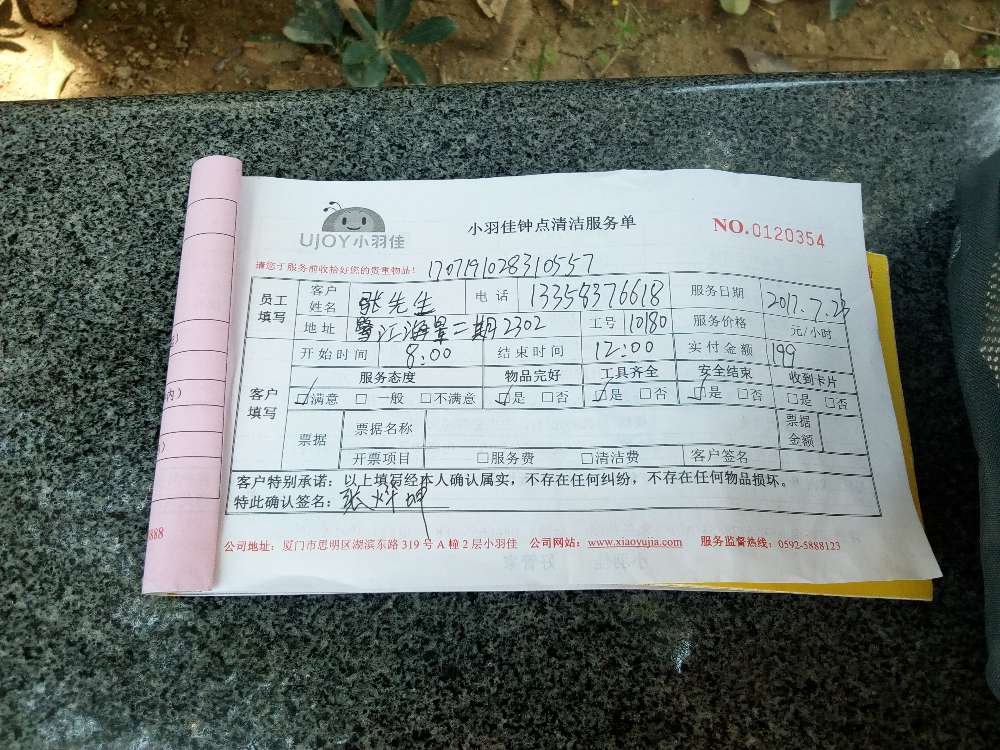 UJOY小羽佳
小羽佳钟点清洁服务单
NO.0120354
请您于服务前收拾好您的贵重物品! 170719102831055​7
员工填写 客户姓名 张先生 电话 13358376618 服务日期 2017.7.23
地址 鹭江海景二期2302 工号 10180 服务价格 元/小时
开始时间 8:00 结束时间 12:00 实付金额 199
客户填写 服务态度 物品完好 工具齐全 安全结束 收到卡片
☑满意 □一般 □不满意 ☑是 □否 ☑是 □否 ☑是 □否 □是 □否
票据 票据名称 票据金额
开票项目 □服务费 □清洁费 客户签名
客户特别承诺:以上填写经本人确认属实,不存在任何纠纷,不存在任何物品损坏。
特此确认签名:张坤
公司地址:厦门市思明区湖滨东路319号A幢2层小羽佳 公司网站:www.xiaoyujia.com 服务监督热线:0592-5888123
内)
888